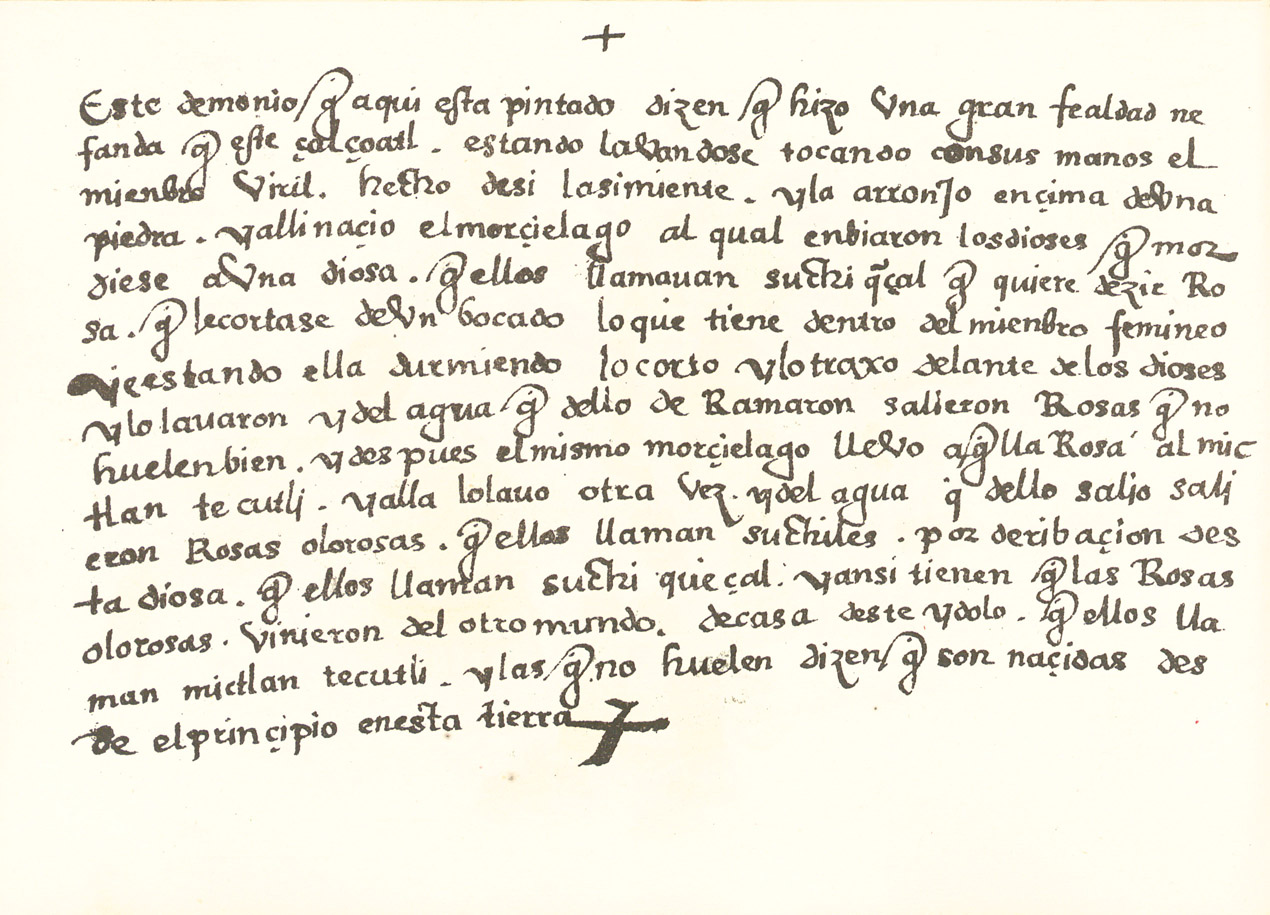 +
Este demonio q̃ aqui esta pintado dizen q̃ hizo vna gran fealdad ne
fanda q̃ este çalçoatl . estando lavandose tocando consus manos el
mienbro viril. hecho desi lasimiente . yla arronJo ençima devna
piedra . yalli naçio elmorçielago al qual enbiaron losdioses q̃ mor
diese avna diosa . q̃ ellos llamauan suchi q̃çal q̃ quiere dezir Ro
sa . q̃ lecortase devn bocado lo que tiene dentro del mienbro femineo
yestando ella durmiendo lo corto ylo traxo delante de los dioses
ylo lauaron y del agua q̃ dello de Ramaron salieron Rosas q̃ no
huelen bien . y des pues elmismo morçielago llevo a q̃lla Rosa al mic
tlan te cutlj . yalla lolauo otra vez . ydel agua q̃ dello salio salj
eron Rosas olorosas . q̃ ellos llaman suchiles . por deribaçion des
ta diosa . q̃ ellos llaman suchi queçal . yansi tienen q̃ las Rosas
olorosas . vinjeron del otro mundo . decasa deste ydolo . q̃ ellos lla
man mictlan tecutli . ylas q̃ no huelen dizen q̃ son naçidas des
de elprinçipio enesta tierra